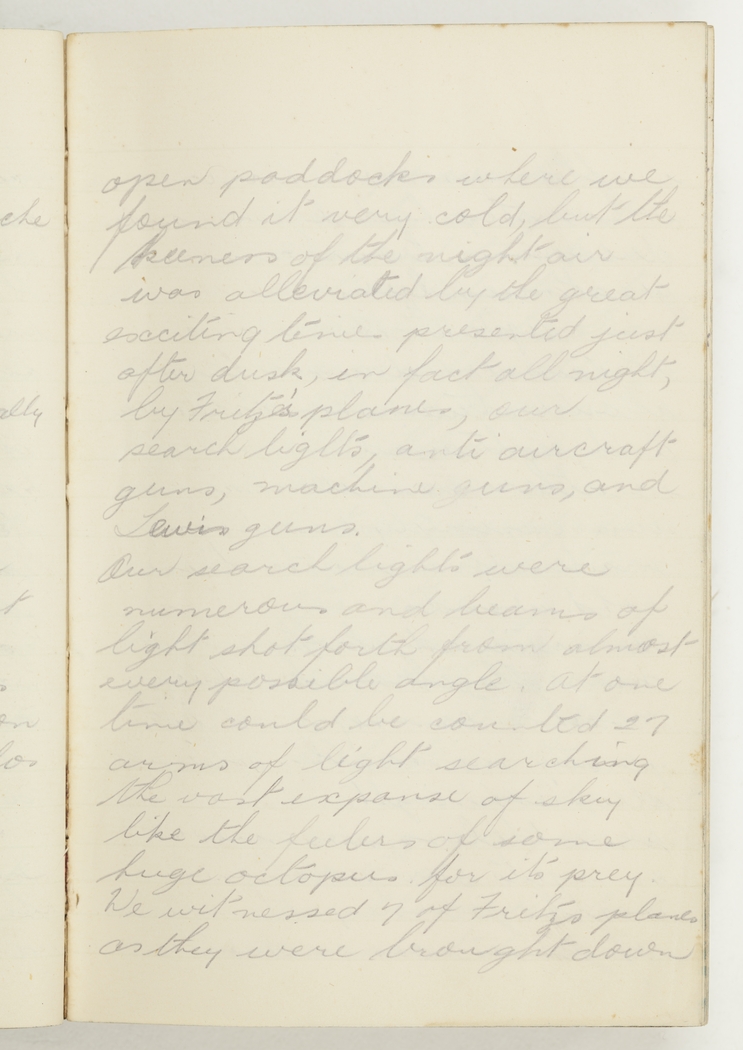 open paddocks where we
found it very cold, but the
keeness of the night air
was alleviated by the great
exciting time presented just
after dusk, in fact all night,
by Fritz's planes, our
search lights, anti aircraft
guns, machine guns, and
Lewis guns.
Our search lights were
numerous and beams of
light shot forth from almost
every possible angle. At one
time could be counted 27
arms of light searching
the vast expanse of sky
like the feelers of some
huge octopus for its prey.
We witnessed 7 of Fritzs planes
as they were brought down